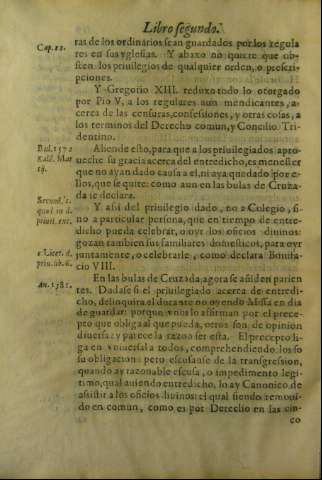 Libro segundo.
Cap. 12.
ras de los ordinarios sean guardados por los regula
res en sus yglesias. Y abaxo no quiere que ob-
sten los priuilegios de qualquier orden, o prescri-
pciones.
Y Gregorio XIII. reduxo todo lo otorgado
por Pio V, a los regulares aun mendicantes, a-
cerca de las censuras, confessiones, y otras cosas, a
los terminos del Derecho comun, y Concilio Tri-
dentino.
Allende esto, para que a los priuilegiados apro-
ueche su gracia acerca del entredicho, es menester
que no ayan dado causa a el, ni aya quedado por e-
llos, que se quite: como aun en las bulas de Cruza-
da se declara.
Y assi del priuilegio dado, no a Colegio, si-
no a particular persona, que en tiempo de entre-
dicho pueda celebrar, o oyr los oficios diuinos:
gozan tambien sus familiares domesticos, para oyr
juntamente, o celebrarle, como declara Bonifa-
cio VIII.
An. 1581.
En las bulas de Cruzada, agora se añiden parien
tes. Dudase si el priuilegiado acerca de entredi-
cho, delinquira el durante no oyendo Missa en dia
de guardar: porque vnos lo afirman por el prece-
pto que obliga al que pueda, otros son de opinion
diuersa: y parece la razon ser esta. El precepto li-
ga en vniuersal a todos, comprehendiendo los so
su obligacion: pero escusanse de la transgression,
quando ay razonable escusa, o impedimento legi-
timo, qual auiendo entredicho, lo ay Canonico de
assistir a los oficios diuinos: el qual siendo remoui-
do en comun, como es por Derecho en las cin-
co